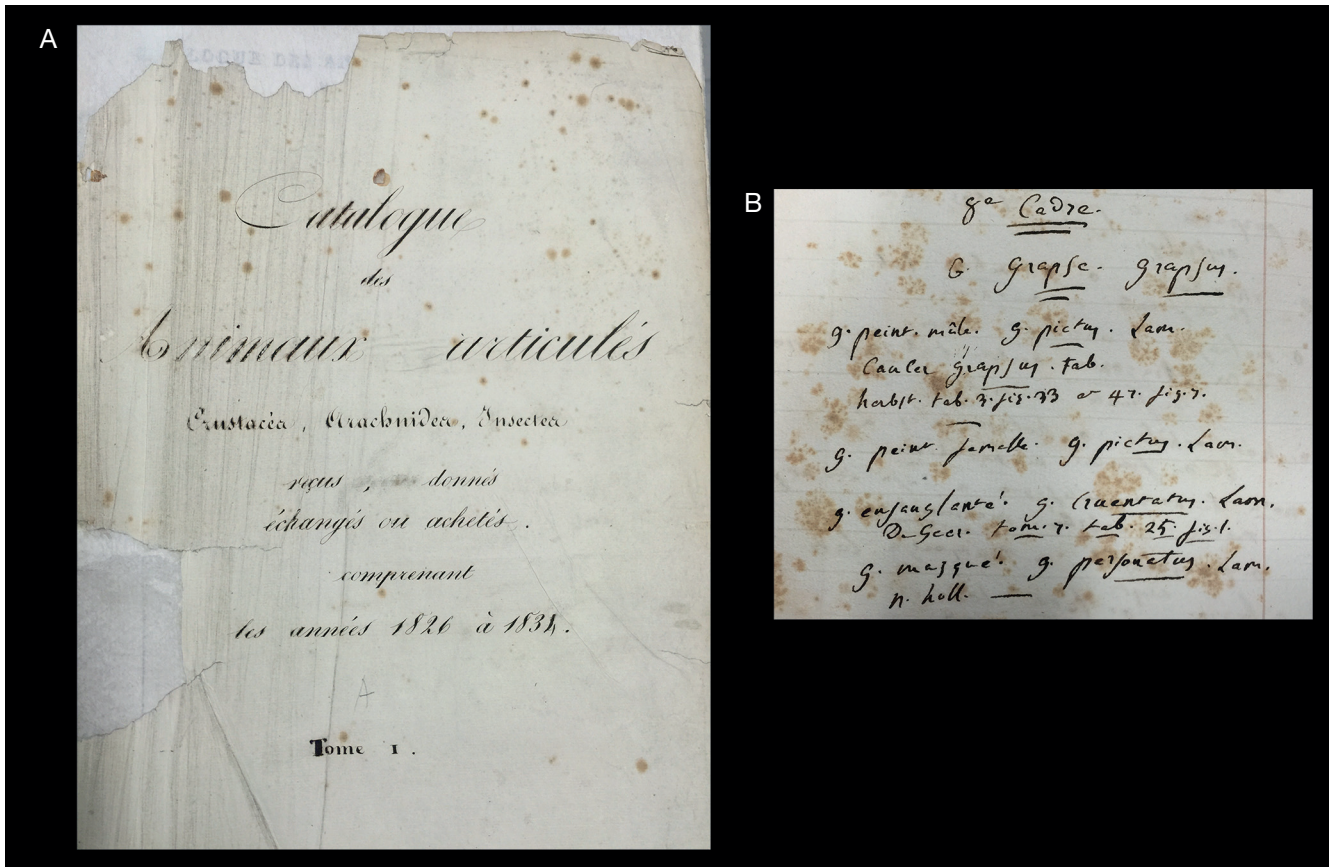 A
Catalogue
des
Animaux articulés
Crustacés, Arachnides, Insectes
reçus, donnés
échangés ou achetés.
comprenant
les années 1826 à 1834.
A
Tome 1.
B
8e Cadre.
G. Grapse. Grapsus.
g. peint. mâle. g. pictus. Lam.
Cancer grapsus. Fab.
herbst. tab. 3. fig. 33 et 47. fig. 7.
g. peint femelle. g. pictus. Lam.
g. ensanglanté. g. cruentatus. Lam.
DeGeer. tom. 7. tab. 25. fig. 1.
g. masqué. g. personatus. Lam.
n. holl.